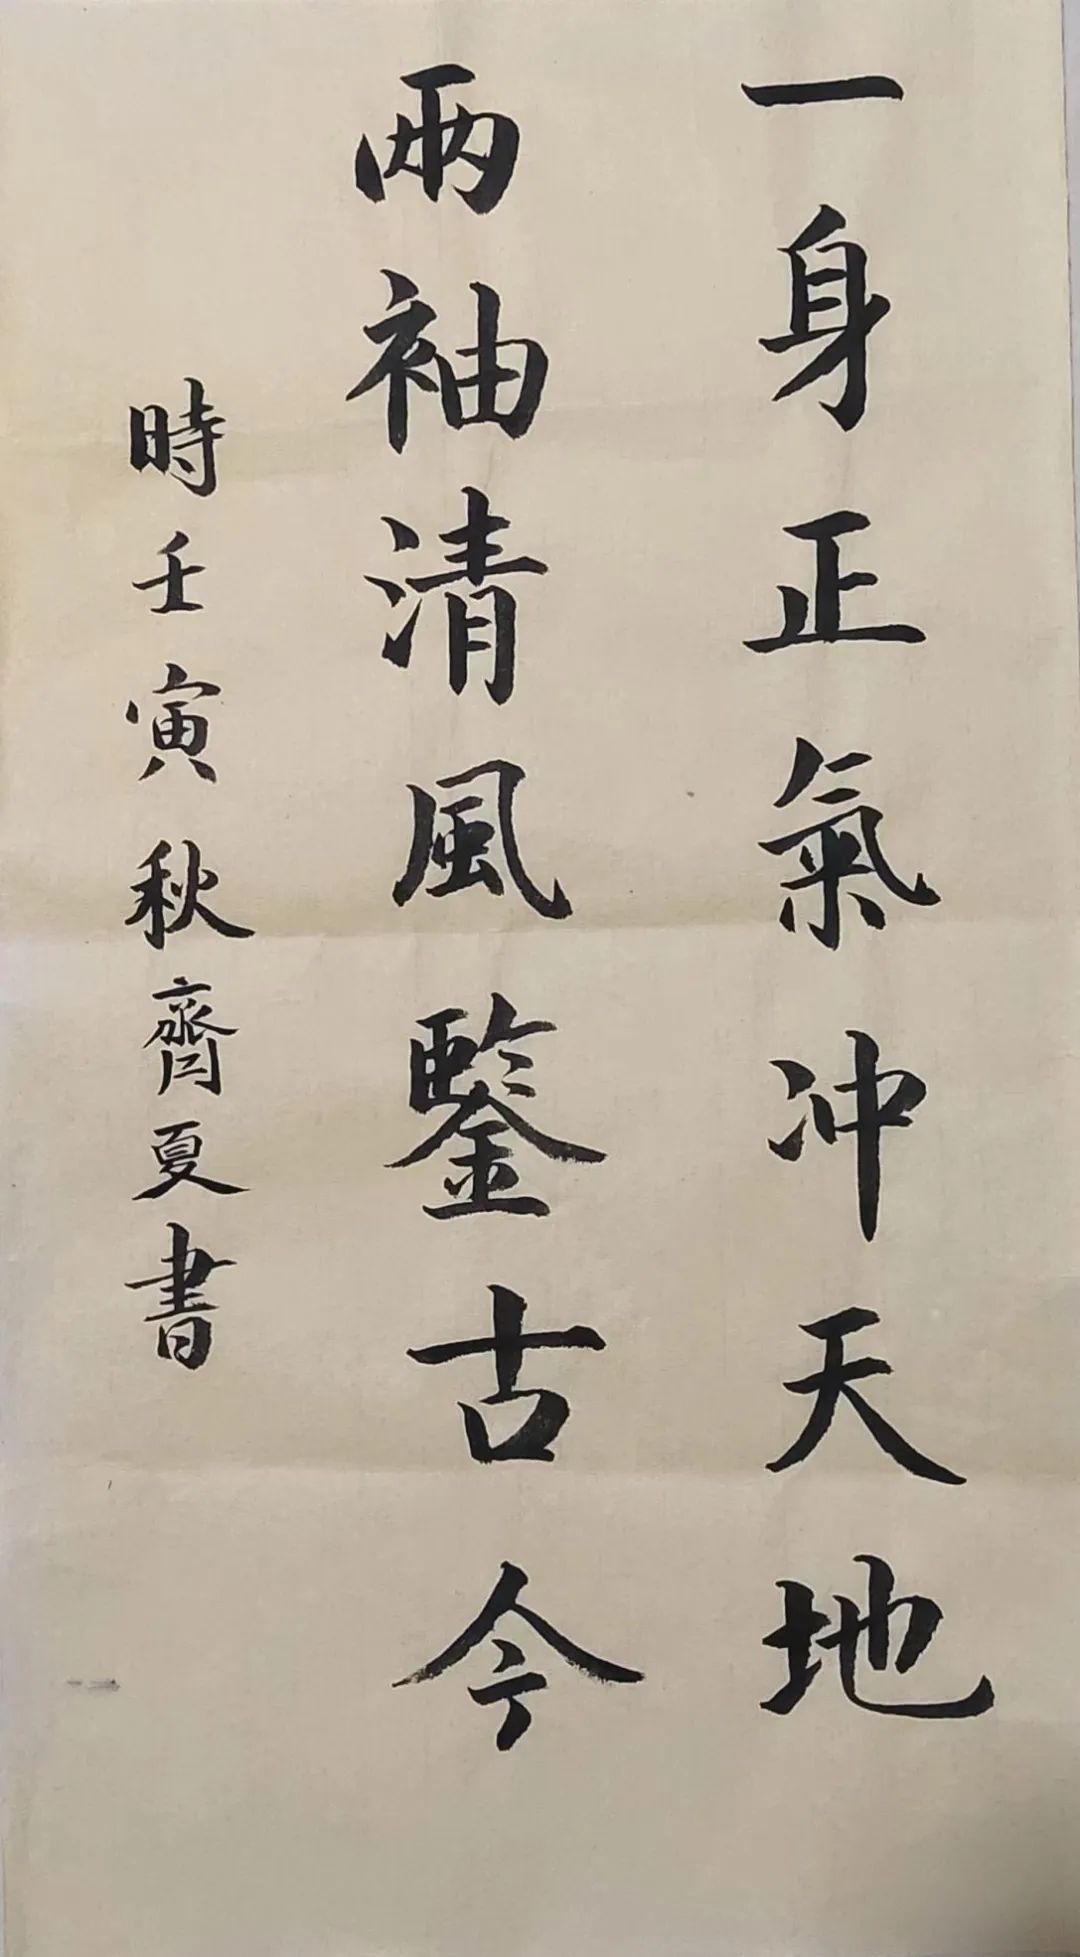 一身正氣冲天地
兩袖清風鑒古今
時壬寅秋齊夏書